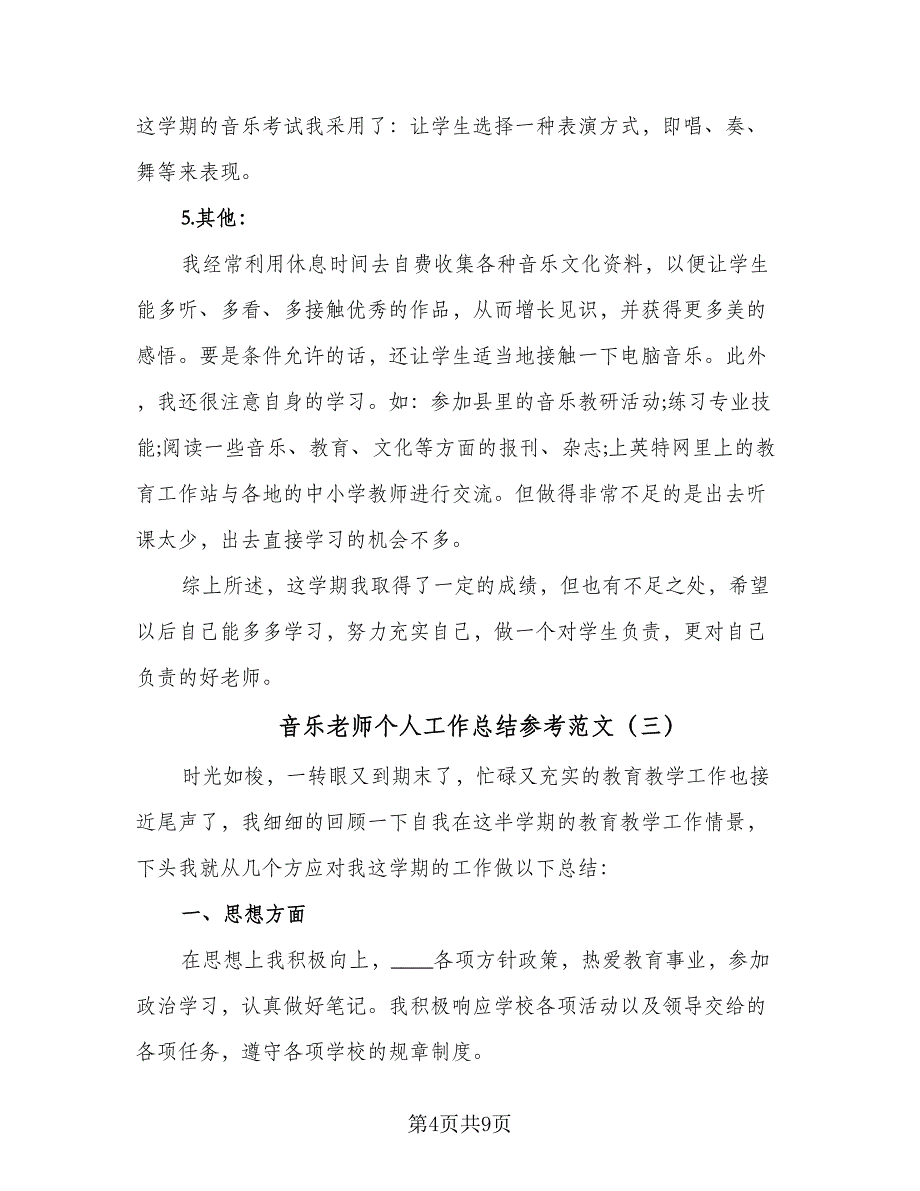 这学期的音乐考试我采用了：让学生选择一种表演方式，即唱、奏、
舞等来表现。
5.其他：
我经常利用休息时间去自费收集各种音乐文化资料，以便让学生
能多听、多看、多接触优秀的作品，从而增长见识，并获得更多美的
感悟。要是条件允许的话，还让学生适当地接触一下电脑音乐。此外
，我还很注意自身的学习。如：参加县里的音乐教研活动;练习专业技
能;阅读一些音乐、教育、文化等方面的报刊、杂志;上英特网里上的教
育工作站与各地的中小学教师进行交流。但做得非常不足的是出去听
课太少，出去直接学习的机会不多。
综上所述，这学期我取得了一定的成绩，但也有不足之处，希望
以后自己能多多学习，努力充实自己，做一个对学生负责，更对自己
负责的好老师。
音乐老师个人工作总结参考范文（三）
时光如梭，一转眼又到期末了，忙碌又充实的教育教学工作也接
近尾声了，我细细的回顾一下自我在这半学期的教育教学工作情景，
下头我就从几个方应对我这学期的工作做以下总结：
一、思想方面
在思想上我积极向上，____各项方针政策，热爱教育事业，参加
政治学习，认真做好笔记。我积极响应学校各项活动以及领导交给的
各项任务，遵守各项学校的规章制度。
第4页共9页